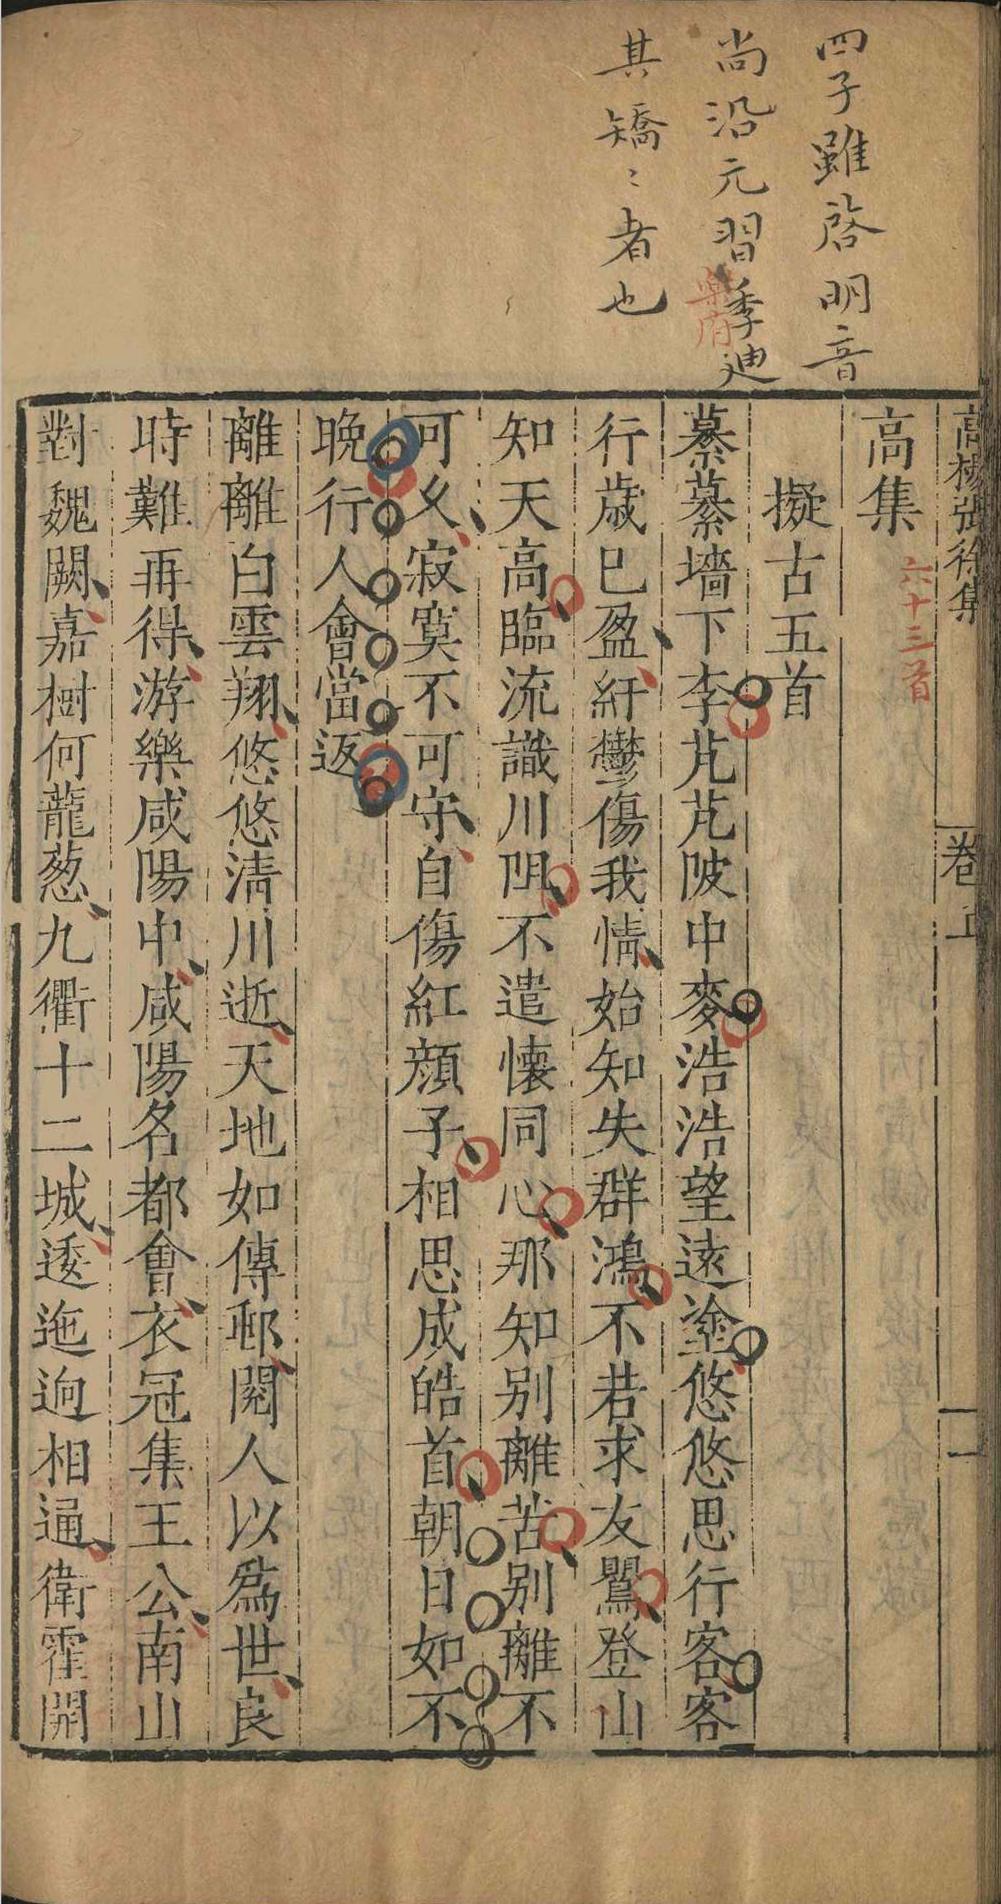 四子雖啓明音
尚沿元習季迪
樂府
其矯〻者也
高楊張徐集
卷上
一
高集
六十三首
擬古五首
蓁蓁墻下李芃芃陂中麥浩浩望遠塗悠悠思行客客
行歲已盈紆鬱傷我情始知失群鴻不若求友鸎登山
知天高臨流識川阻不遣懷同心那知别離苦别離不
可乆寂寞不可守自傷紅顔子相思成皓首朝日如不
晚行人會當返
離離白雲翔悠悠清川逝天地如傳郵閱人以爲世良
時難再得游樂咸陽中咸陽名都會衣冠集王公南山
對魏闕嘉樹何蘢葱九衢十二城逶迤逈相通衛霍開